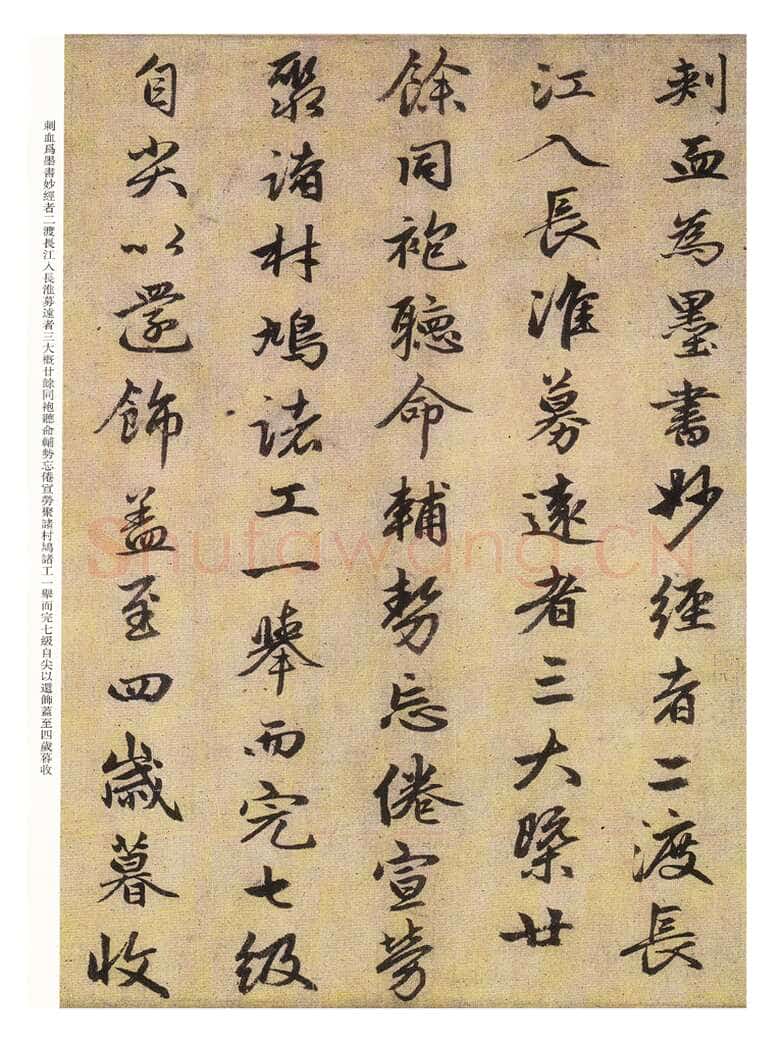 刺血為墨書妙經者二渡長
江入長淮募遠者三大槩廿
餘同袍聽命輔勢忘倦宣勞
聚諸材鳩諸工一舉而完七級
自尖以還飾盖至四歲暮收
刺血爲墨書妙經者二渡長江入長淮募遠者三大概廿餘同袍聽命輔勢忘倦宣勞聚諸村鳩諸工一舉而完七級自尖以還飾蓋至四歲暮收
Shufawang.CN